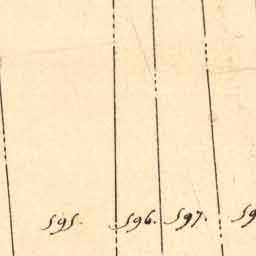 595. 596. 597. 59